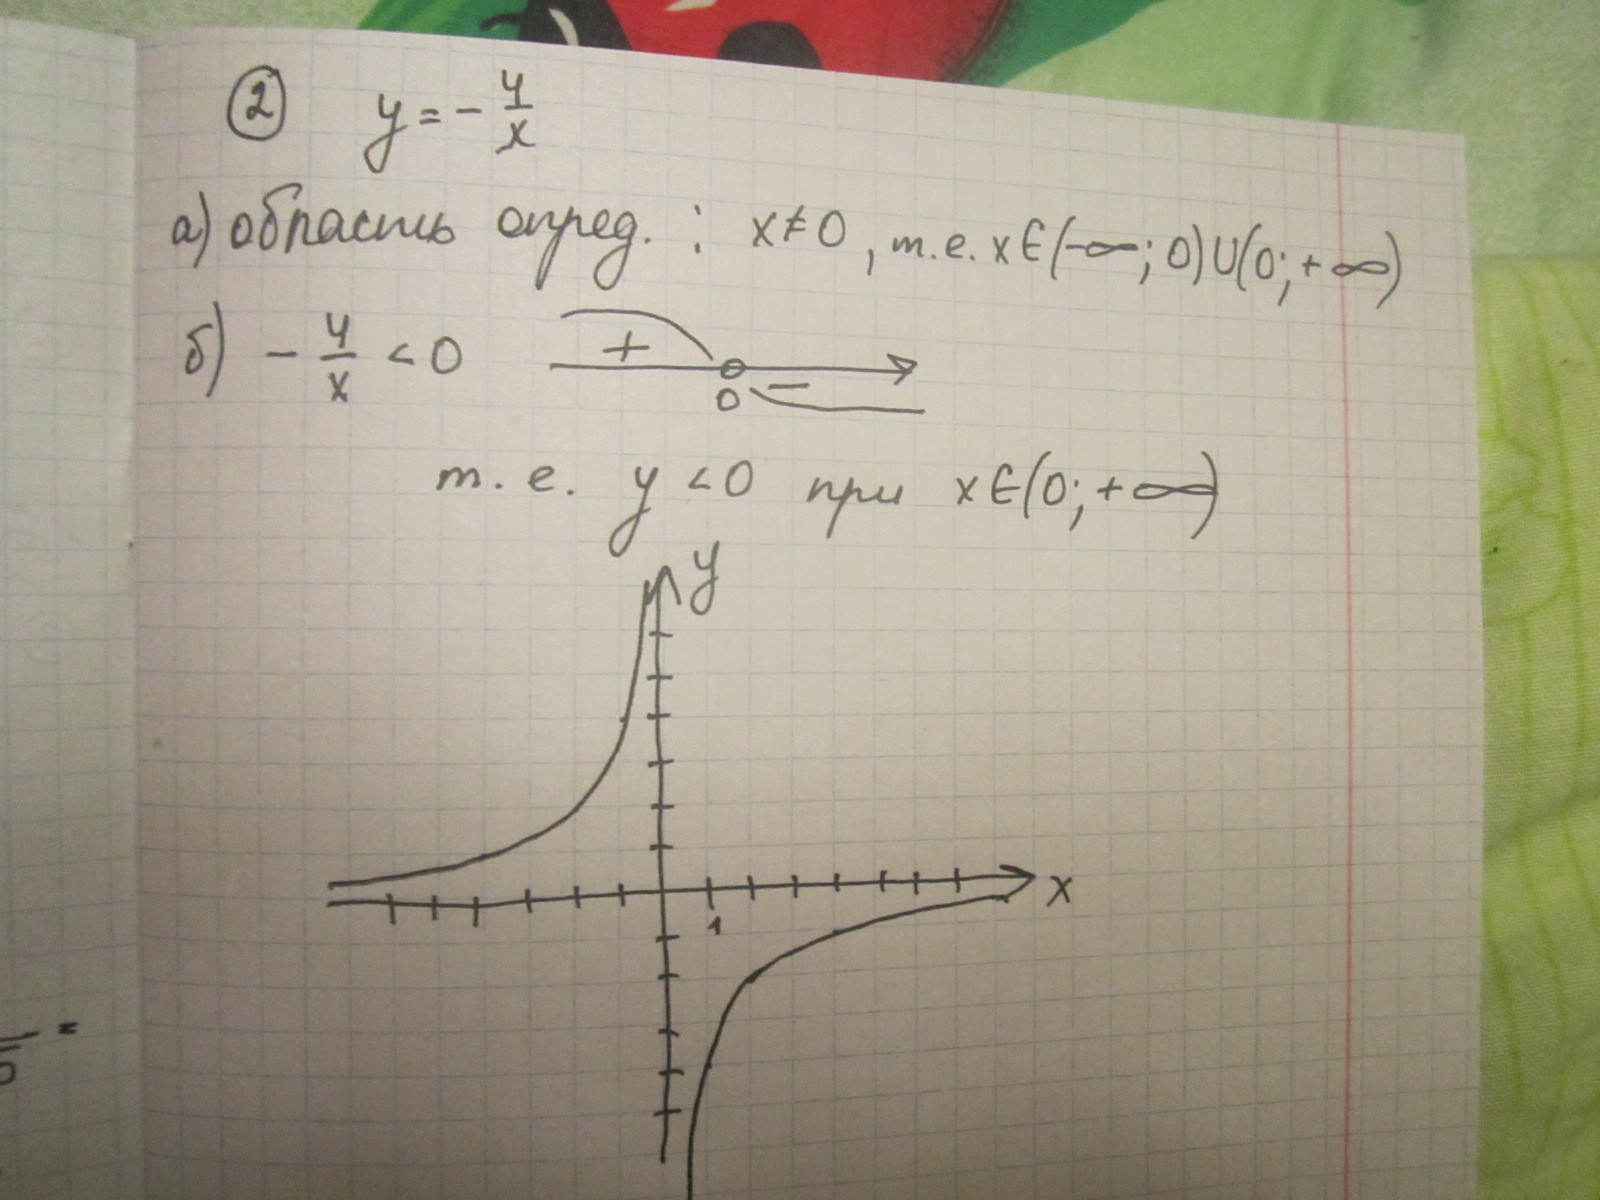 2 y = - 4/x
а) область опред. : x ≠ 0, т.е. x ∈ (-∞; 0) U (0; +∞)
б) - 4/x < 0
+
0
−
т. е. y < 0 при x ∈ (0; +∞)
y
x
1
=